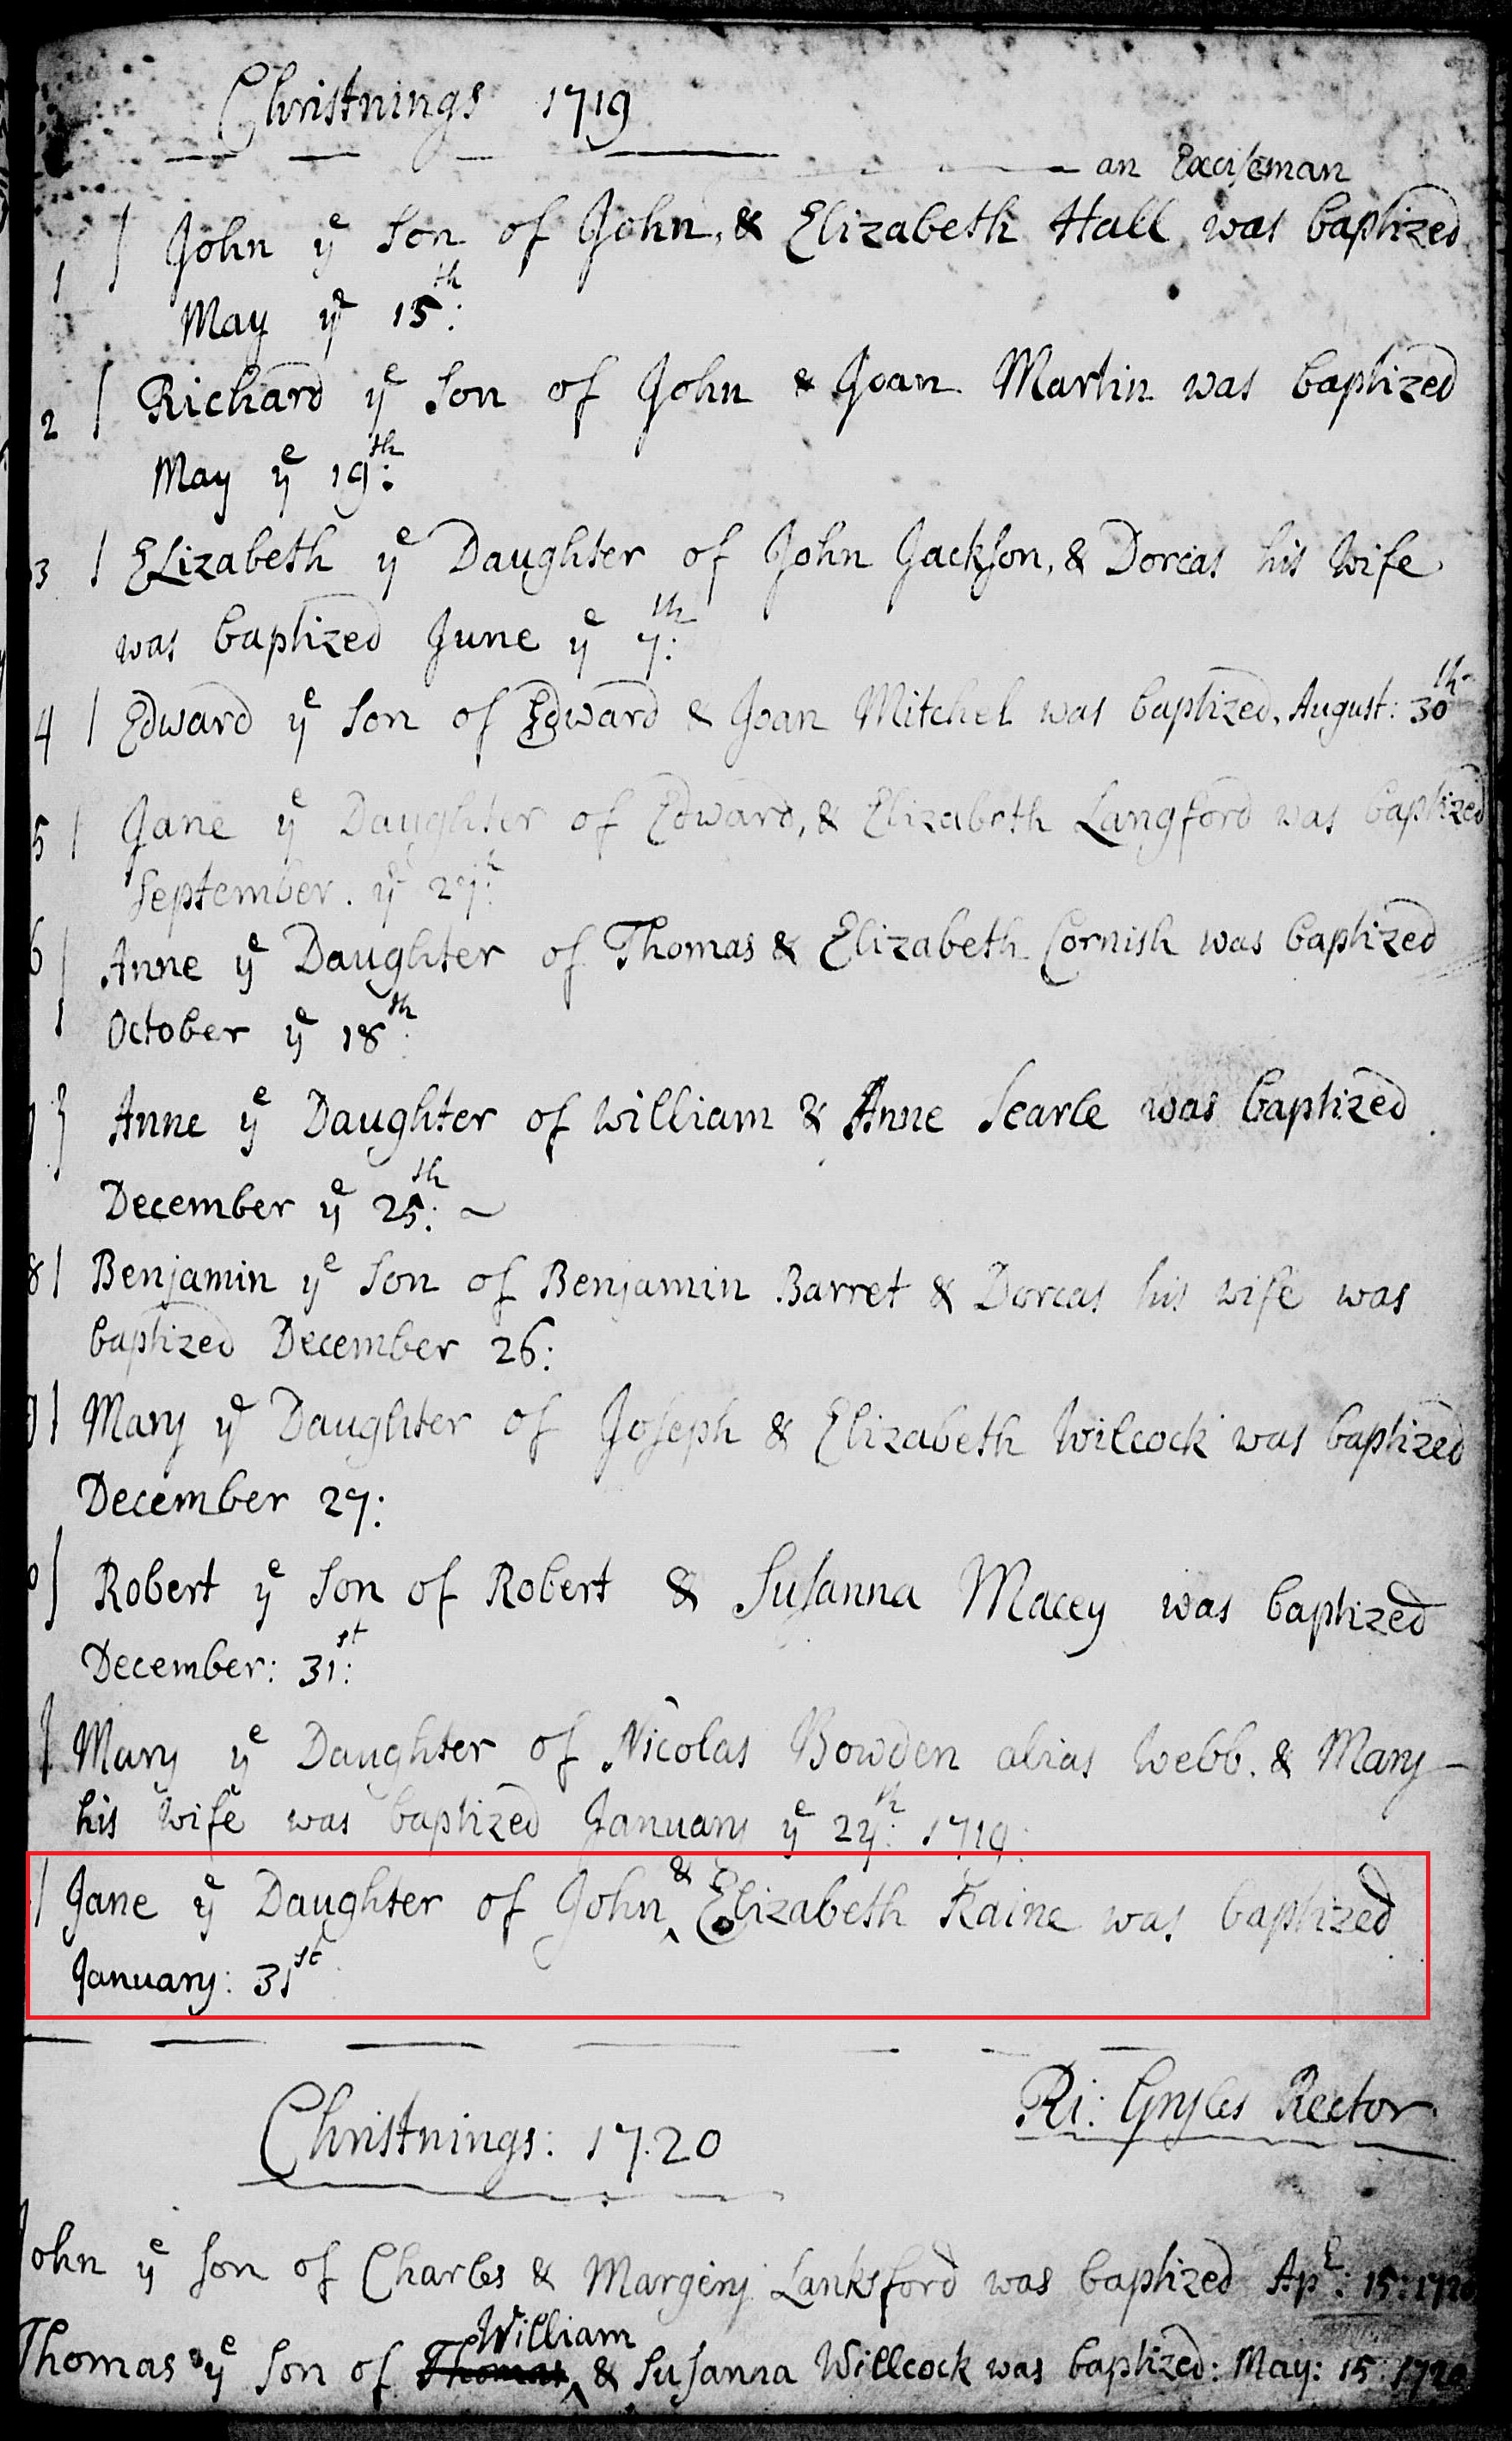 Christnings 1719
an Exciseman
1 John yͤ Son of John, & Elizabeth Hall was baptized
May yͤ 15th:
2 Richard yͤ Son of John & Joan Martin was baptized
May yͤ 19th:
3 Elizabeth yͤ Daughter of John Jackson, & Dorcas his Wife
was baptized June yͤ 7th:
4 Edward yͤ Son of Edward & Joan Mitchel was baptized, August: 30th
5 Jane yͤ Daughter of Edward, & Elizabeth Langford was baptized
September. yͤ 27th:
6 Anne yͤ Daughter of Thomas & Elizabeth Cornish was baptized
October yͤ 18th:
Anne yͤ Daughter of William & Anne Searle was baptized
December yͤ 25th: ~
8 Benjamin yͤ Son of Benjamin Barret & Dorcas his wife was
baptized December 26:
Mary yͤ Daughter of Joseph & Elizabeth Wilcock was baptized
December 27:
Robert yͤ Son of Robert & Susanna Macey was baptized
December: 31st:
Mary yͤ Daughter of Nicolas Bowden alias Webb. & Mary
his Wife was baptized January yͤ 1719:
Jane yͤ Daughter of John & Elizabeth Raine was baptized
January: 31st
Ri: Gyles Rector
Christnings: 1720
John yͤ Son of Charles & Margery Lanksford was baptized Apl: 15: 1720
William
Thomas yͤ Son of Thomas & Susanna Willcock was baptized: May: 15: 1720